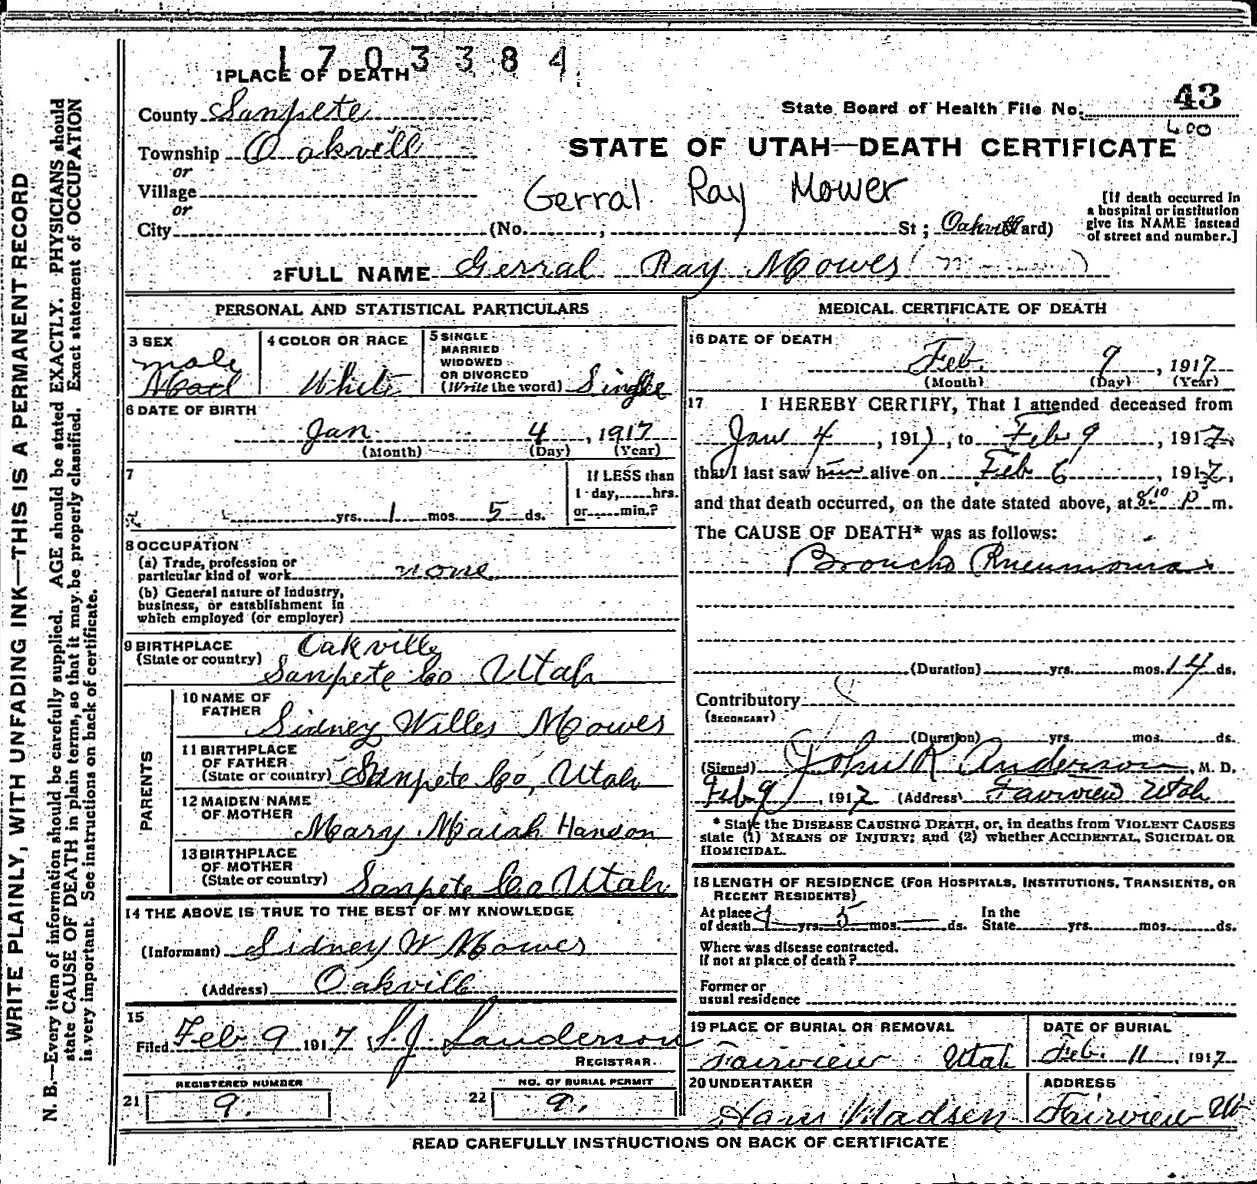 1703384
1 PLACE OF DEATH
County Sanpete
State Board of Health File No. 43
600
Township Oakvill
STATE OF UTAH—DEATH CERTIFICATE
or
Village
Gerral Ray Mower
or
City (No. ; St ; Oakvill ard)
[If death occurred in
a hospital or institution
give its NAME instead
of street and number.]
2 FULL NAME Gerral Ray Mower
PERSONAL AND STATISTICAL PARTICULARS
3 SEX
male
4 COLOR OR RACE
White
5 SINGLE
MARRIED
WIDOWED
OR DIVORCED
(Write the word) Single
6 DATE OF BIRTH
Jan 4, 1917
(Month) (Day) (Year)
7
yrs. 1 mos. 5 ds.
If LESS than
1 day, hrs.
or min.?
8 OCCUPATION
(a) Trade, profession or
particular kind of work none
(b) General nature of industry,
business, or establishment in
which employed (or employer)
9 BIRTHPLACE
(State or country)
Oakville
Sanpete Co Utah
PARENTS
10 NAME OF
FATHER
Sidney Willes Mower
11 BIRTHPLACE
OF FATHER
(State or country) Sanpete Co, Utah
12 MAIDEN NAME
OF MOTHER
Mary Mariah Hanson
13 BIRTHPLACE
OF MOTHER
(State or country) Sanpete Co Utah
14 THE ABOVE IS TRUE TO THE BEST OF MY KNOWLEDGE
(Informant) Sidney W Mower
(Address) Oakvill
15
Filed Feb 9 1917 S.J. Sanderson
REGISTRAR.
REGISTERED NUMBER
21 9.
NO. OF BURIAL PERMIT
22 9.
MEDICAL CERTIFICATE OF DEATH
16 DATE OF DEATH
Feb. 9, 1917
(Month) (Day) (Year)
17 I HEREBY CERTIFY, That I attended deceased from
Jan 4, 1917, to Feb 9, 1917,
that I last saw him alive on Feb 6, 1917,
and that death occurred, on the date stated above, at 8:10 P m.
The CAUSE OF DEATH* was as follows:
Broncho Pneumonia
(Duration) yrs. mos. 14 ds.
Contributory
(SECONDARY)
(Duration) yrs. mos. ds.
(Signed) John R Anderson, M. D.
Feb 9, 1917 (Address) Fairview Utah
* State the DISEASE CAUSING DEATH, or, in deaths from VIOLENT CAUSES
state (1) MEANS OF INJURY; and (2) whether ACCIDENTAL, SUICIDAL OR
HOMICIDAL.
18 LENGTH OF RESIDENCE (FOR HOSPITALS, INSTITUTIONS, TRANSIENTS, OR
RECENT RESIDENTS)
At place
of death 1 yrs. 5 mos. ds.
In the
State yrs. mos. ds.
Where was disease contracted.
if not at place of death?
Former or
usual residence
19 PLACE OF BURIAL OR REMOVAL
Fairview Utah
DATE OF BURIAL
Feb. 11, 1917
20 UNDERTAKER
Hans Madsen
ADDRESS
Fairview Ut
READ CAREFULLY INSTRUCTIONS ON BACK OF CERTIFICATE
WRITE PLAINLY, WITH UNFADING INK—THIS IS A PERMANENT RECORD
N. B.—Every item of information should be carefully supplied. AGE should be stated EXACTLY. PHYSICIANS should
state CAUSE OF DEATH in plain terms, so that it may be properly classified. Exact statement of OCCUPATION
is very important. See instructions on back of certificate.